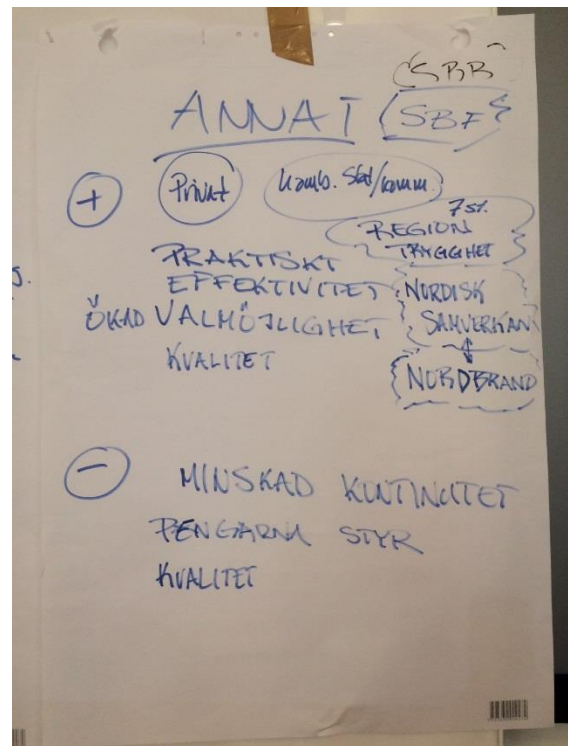 SBB
ANNAT
SBF
+
Privat
komb. Stat/komm.
7 st.
REGION
TRYGGHET
PRAKTISKT
EFFEKTIVITET
NORDISK
ÖKAD VALMÖJLIGHET
SAMVERKAN
KVALITET
NORDBRAND
-
MINSKAD KONTINUITET
PENGARNA STYR
KVALITET